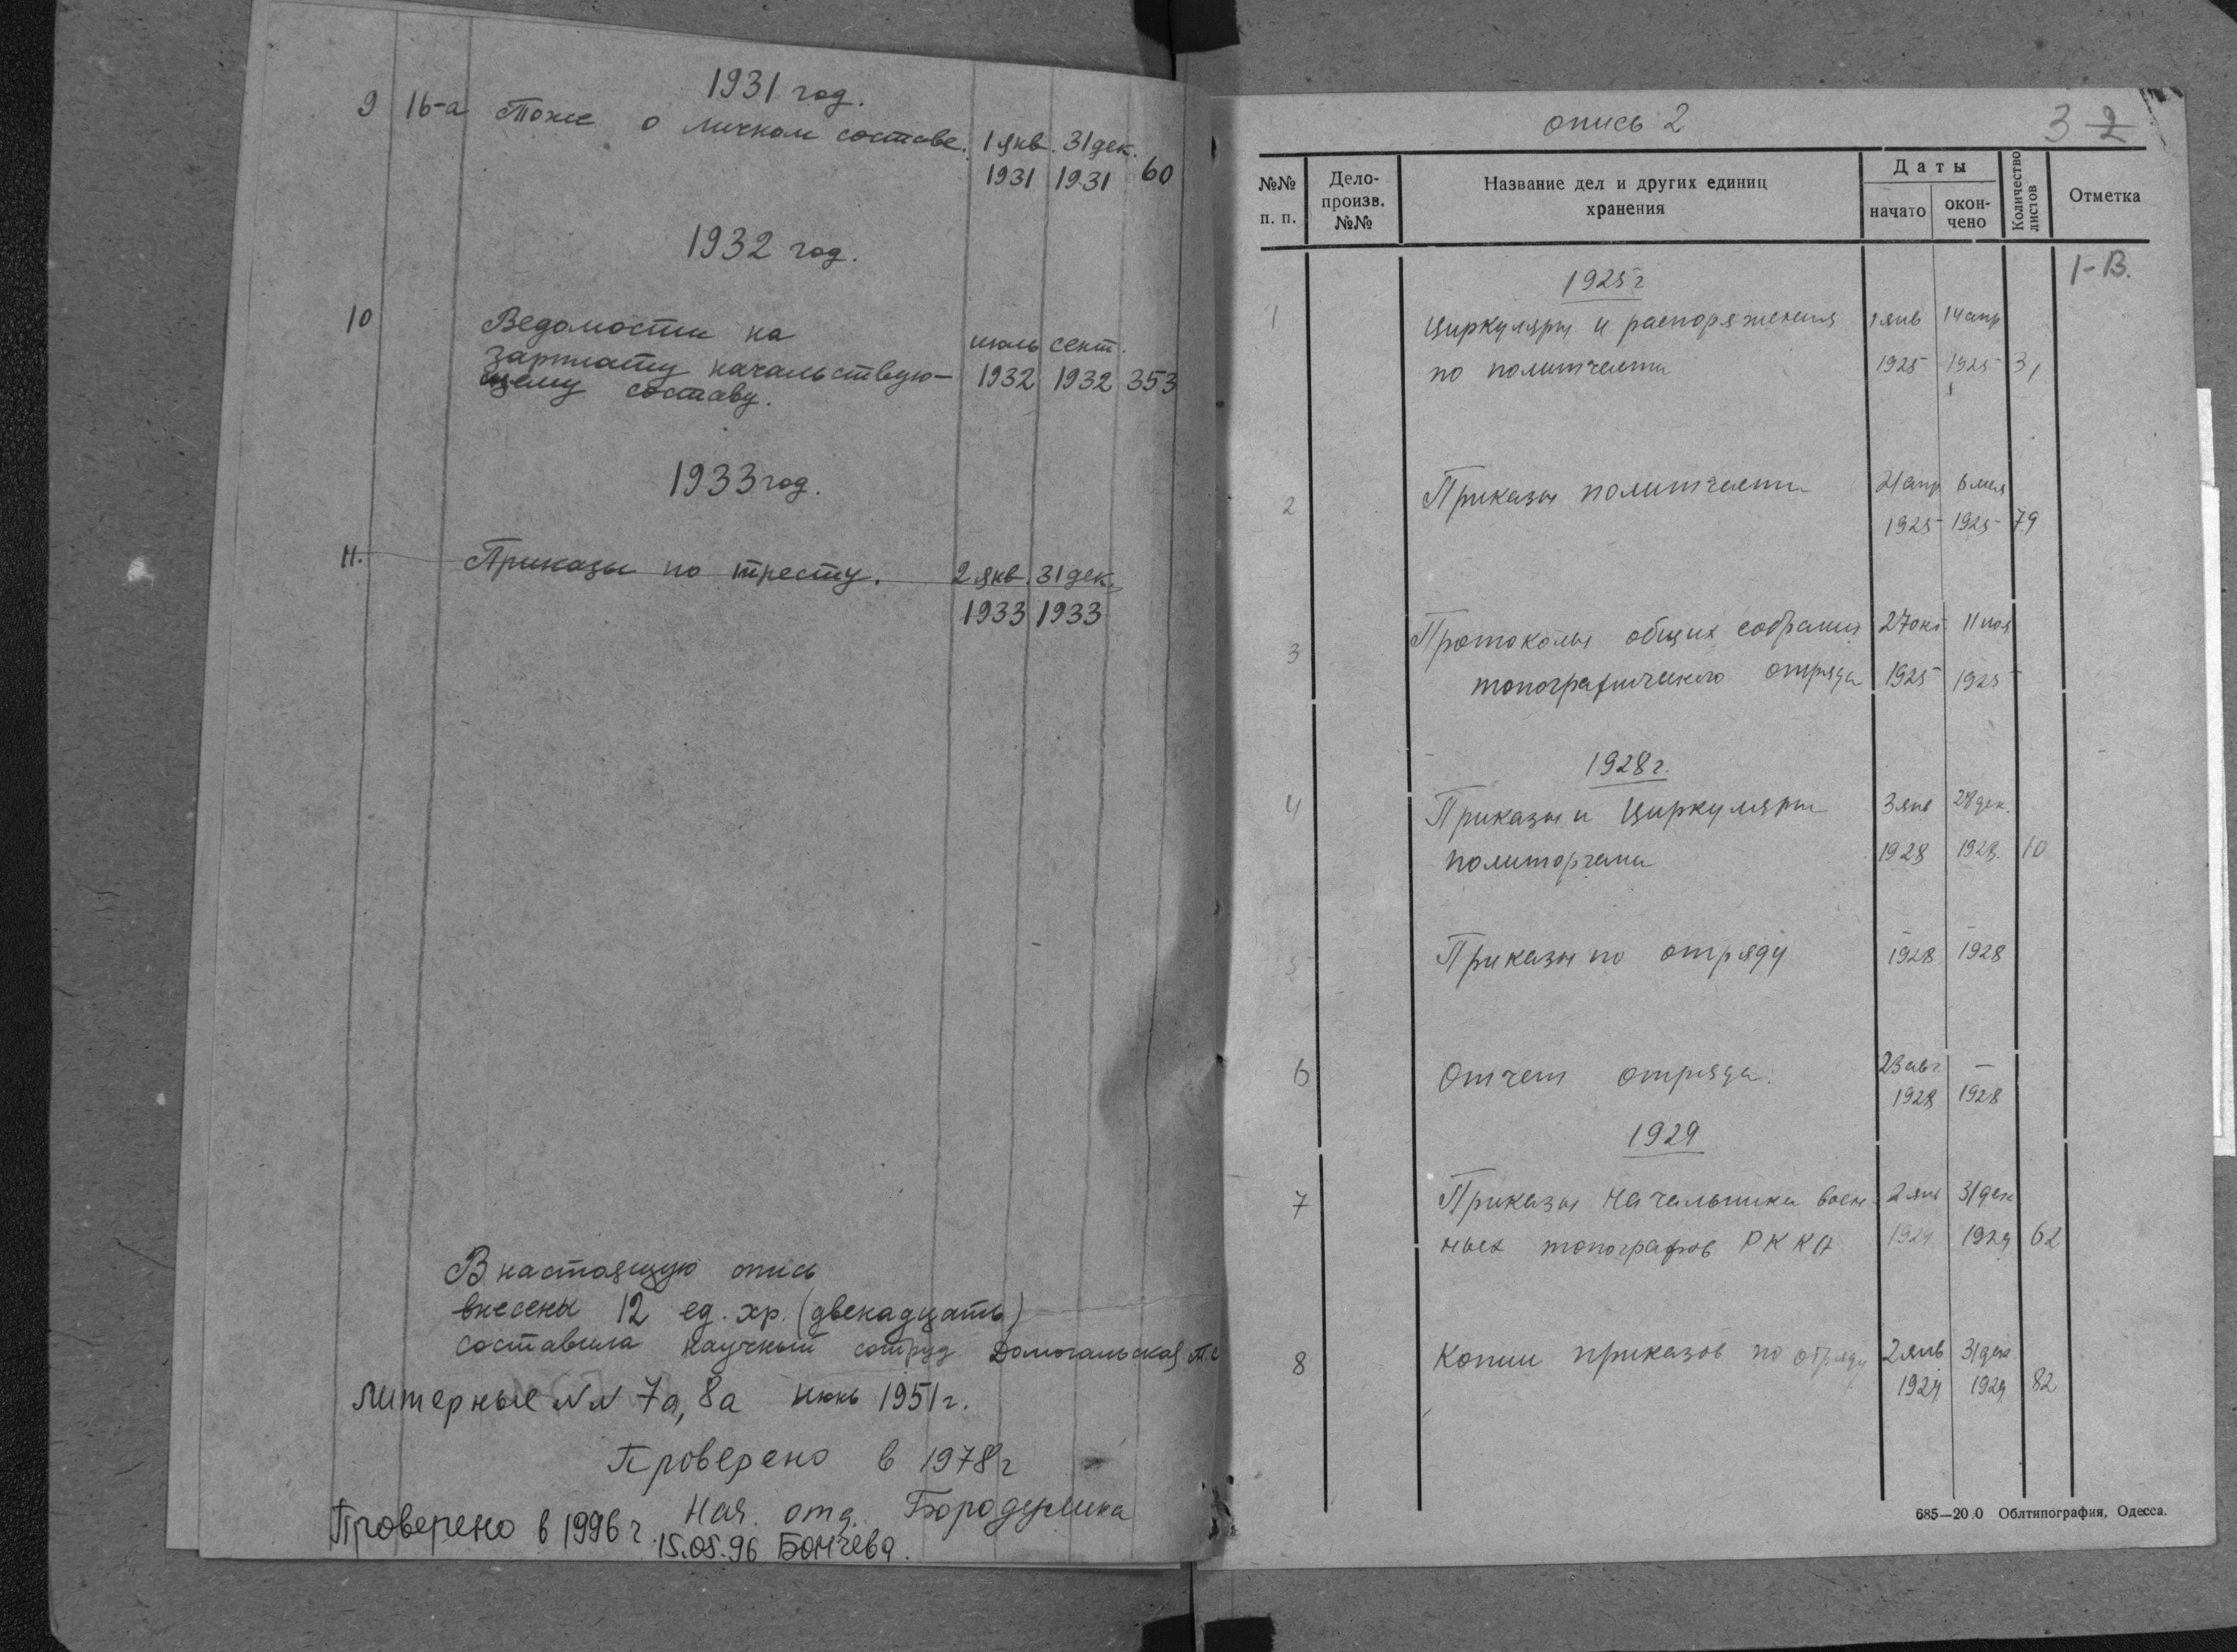 1931 год.
9 16-а Тоже о личном составе. 1 янв. 31 дек.
1931 1931 60
1932 год.
10 Ведомости на
зарплату начальствую- июль сент.
щему составу. 1932 1932 353
1933 год.
11. Приказы по тресту. 2 янв. 31 дек.
1933 1933
В настоящую опись
внесены 12 ед. хр. (двенадцать)
составила научный сотруд
литерные NN 7а, 8а июнь 1951г.
Проверено в 1978г
Нач. отд.
Проверено в 1996г
15.05.96 Бончева.
опись 2
3 2
№№ п. п.
Дело-произв. №№
Название дел и других единиц хранения
Даты
начато
окон-чено
Количество листов
Отметка
1-В.
1925г
1 Циркуляры и распоряжения 1 янв 14 апр
по политчасти 1925 1925 31
2 Приказы политчасти 21 апр 6 мая
1925 1925 79
3 Протоколы общих собраний 27 окт 11 ноя
топографического отряда 1925 1925
1928г.
4 Приказы и циркуляры 3 янв 28 дек.
политоргана 1928 1928. 10
5 Приказы по отряду 1928 1928
6 Отчет отряда. 23 авг –
1928 1928
1929
7 Приказы начальника воен- 2 янв 31 дек
ных топографов РККА 1929 1929 62
8 Копии приказов по отряду 2 янв 31 дек.
1929 1929 82
685—20 0 Облтипография, Одесса.